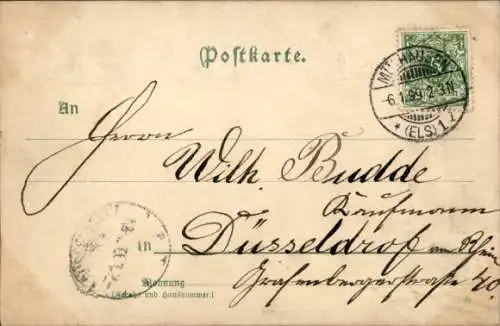 Postkarte.
MÜLHAUSEN
6.1.99.2-3N.
* (ELS) 1
An
Herrn
Wilh. Budde
Kaufmann
in Düsseldrof am Rhein
Wohnung Grafenbergerstraße 40.
(Straße und Hausnummer.)